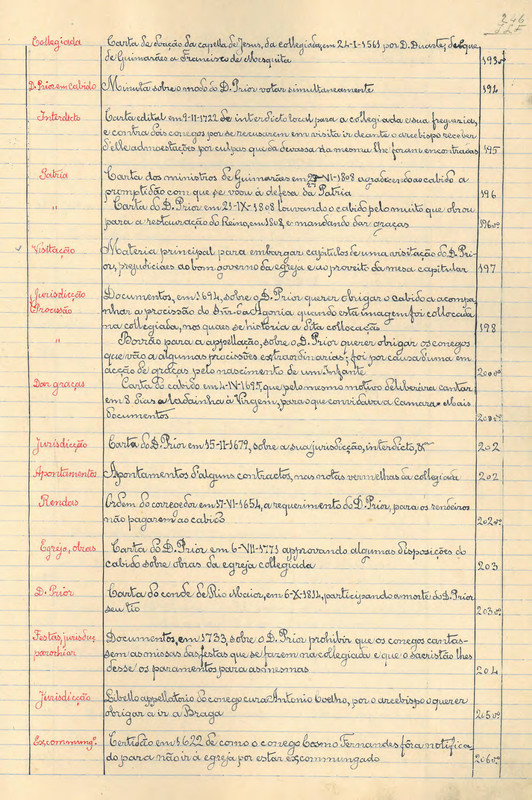 246
Collegiada Carta de doação da capella de Jesus, da collegiada, em 24-I-1561 por D. Duarte, duque
de Guimarães a Francisco de Mesquita 193vo
D. Prior em Cabido Minuta sobre o modo do D. Prior votar simultaneamente 194
Interdicto Carta edital em 9-II-1722 de interdicto local para a collegiada e sua freguezia,
e contra dois conegos por se recusarem em visita ir deante o arcebispo receber
d'elle admoestações por culpas que da devassa da mesma lhe foram encontradas 195
Patria Carta dos ministros de Guimarães em -VI-1808 agradecendo ao cabido a
promptidão com que se votou á defesa da Patria 196
" Carta do D. Prior em 21-IX-1808 louvando o cabido pelo muito que obrou
para a restauração do Reino, em 1808, e mandando dar graças 196vo
Visitação Materia principal para embargar capitulos de uma visitação do D. Pri-
or, prejudiciaes ao bom governo da egreja e ao proveito da mesa capitular 197
Jurisdicção Documentos, em 1694, sobre o D. Prior querer obrigar o cabido a acompa-
Procissão nhar a procissão do Snr. da Agonia quando esta imagem foi collocada
na collegiada, nos quaes se historia a dita collocação 198
" Borrão para a appellação, sobre o D. Prior querer obrigar os conegos
que vão a algumas procissões extraordinarias; foi por causa d'uma em
acção de graças pelo nascimento de um Infante 200vo
Dar graças Carta do cabido em 4-IX-1695, que pelo mesmo motivo deliberára cantar
em 8 dias a ladainha á Virgem, para o que convidava a Camara. Mais
documentos
Jurisdicção Carta do D. Prior em 15-II-1679, sobre a sua jurisdicção, interdicto, &c 202
Apontamentos Apontamentos d'alguns contractos, nas notas vermelhas da collegiada 202
Rendas Ordem do corregedor em 17-VI-1654, a requerimento do D. Prior, para os rendeiros
não pagarem ao cabido 202vo
Egreja, obras Carta do D. Prior em 6-VII-1771 approvando algumas disposições do
cabido sobre obras da egreja collegiada 203
D. Prior Carta do conde de Rio Maior, em 6-X-1814, participando a morte do D. Prior
seu tio 203vo
Festas, Documentos, em 1733, sobre o D. Prior prohibir que os conegos cantas-
parochiar sem as missas das festas que se fazem na collegiada e que o sacristão lhes
desse os paramentos para as mesmas 204
Jurisdicção Libello appellatorio do conego cura Antonio Coelho, por o arcebispo o querer
obrigar a ir a Braga 205vo
Excommung. Certidão em 1622 de como o conego Cosmo Fernandes fôra notifica-
do para não ir á egreja por estar excommungado 206vo